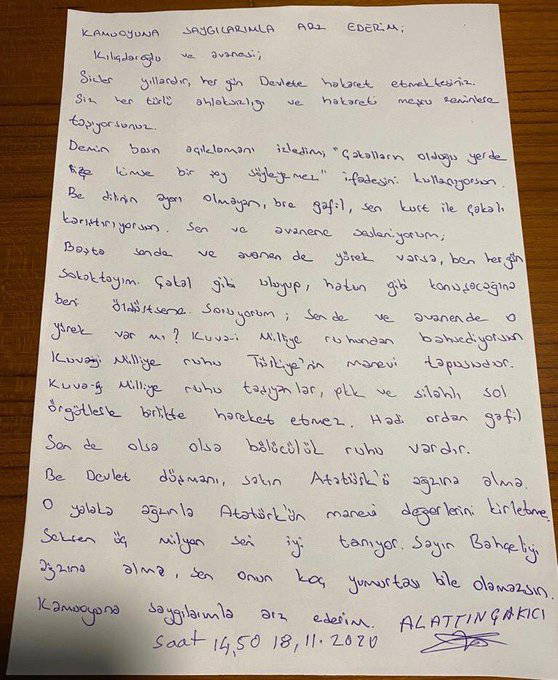 KAMUOYUNA SAYGILARIMLA ARZ EDERİM;
Kılıçdaroğlu ve avanesi;
Sizler yıllardır, her gün Devlete hakaret etmektesiniz.
Siz her türlü ahlaksızlığı ve hakareti meşru zeminlere
taşıyorsunuz.
Demin basın açıklamanı izledim; "Çakalların olduğu yerde
bize kimse bir şey söyleyemez" ifadesini kullanıyorsun.
Be dilinin ayarı olmayan, bre gafil, sen kurt ile çakalı
karıştırıyorsun. Sen ve avanene sesleniyorum;
Başta sende ve avanen de yürek varsa, ben her gün
sokaktayım. Çakal gibi uluyup, hatun gibi konuşacağına
beni öldürtsene. Soruyorum; sende ve avanende o
yürek var mı? Kuva-i Milliye ruhundan bahsediyorsun
Kuvayi Milliye ruhu Türkiye'nin manevi tapusudur.
Kuva-yi Milliye ruhu taşıyanlar, pkk ve silahlı sol
örgütlerle birlikte hareket etmez. Hadi ordan gafil
Sen de olsa olsa bölücülük ruhu vardır.
Be Devlet düşmanı, sakın Atatürk'ü ağzına alma.
O yalaka ağzınla Atatürk'ün manevi değerlerini kirletme.
Seksen üç milyon seni iyi tanıyor. Sayın Bahçeliyi
ağzına alma, sen onun koç yumurtası bile olamazsın.
Kamuoyuna saygılarımla arz ederim. ALATTİN ÇAKICI
saat 14,50 18,11.2020